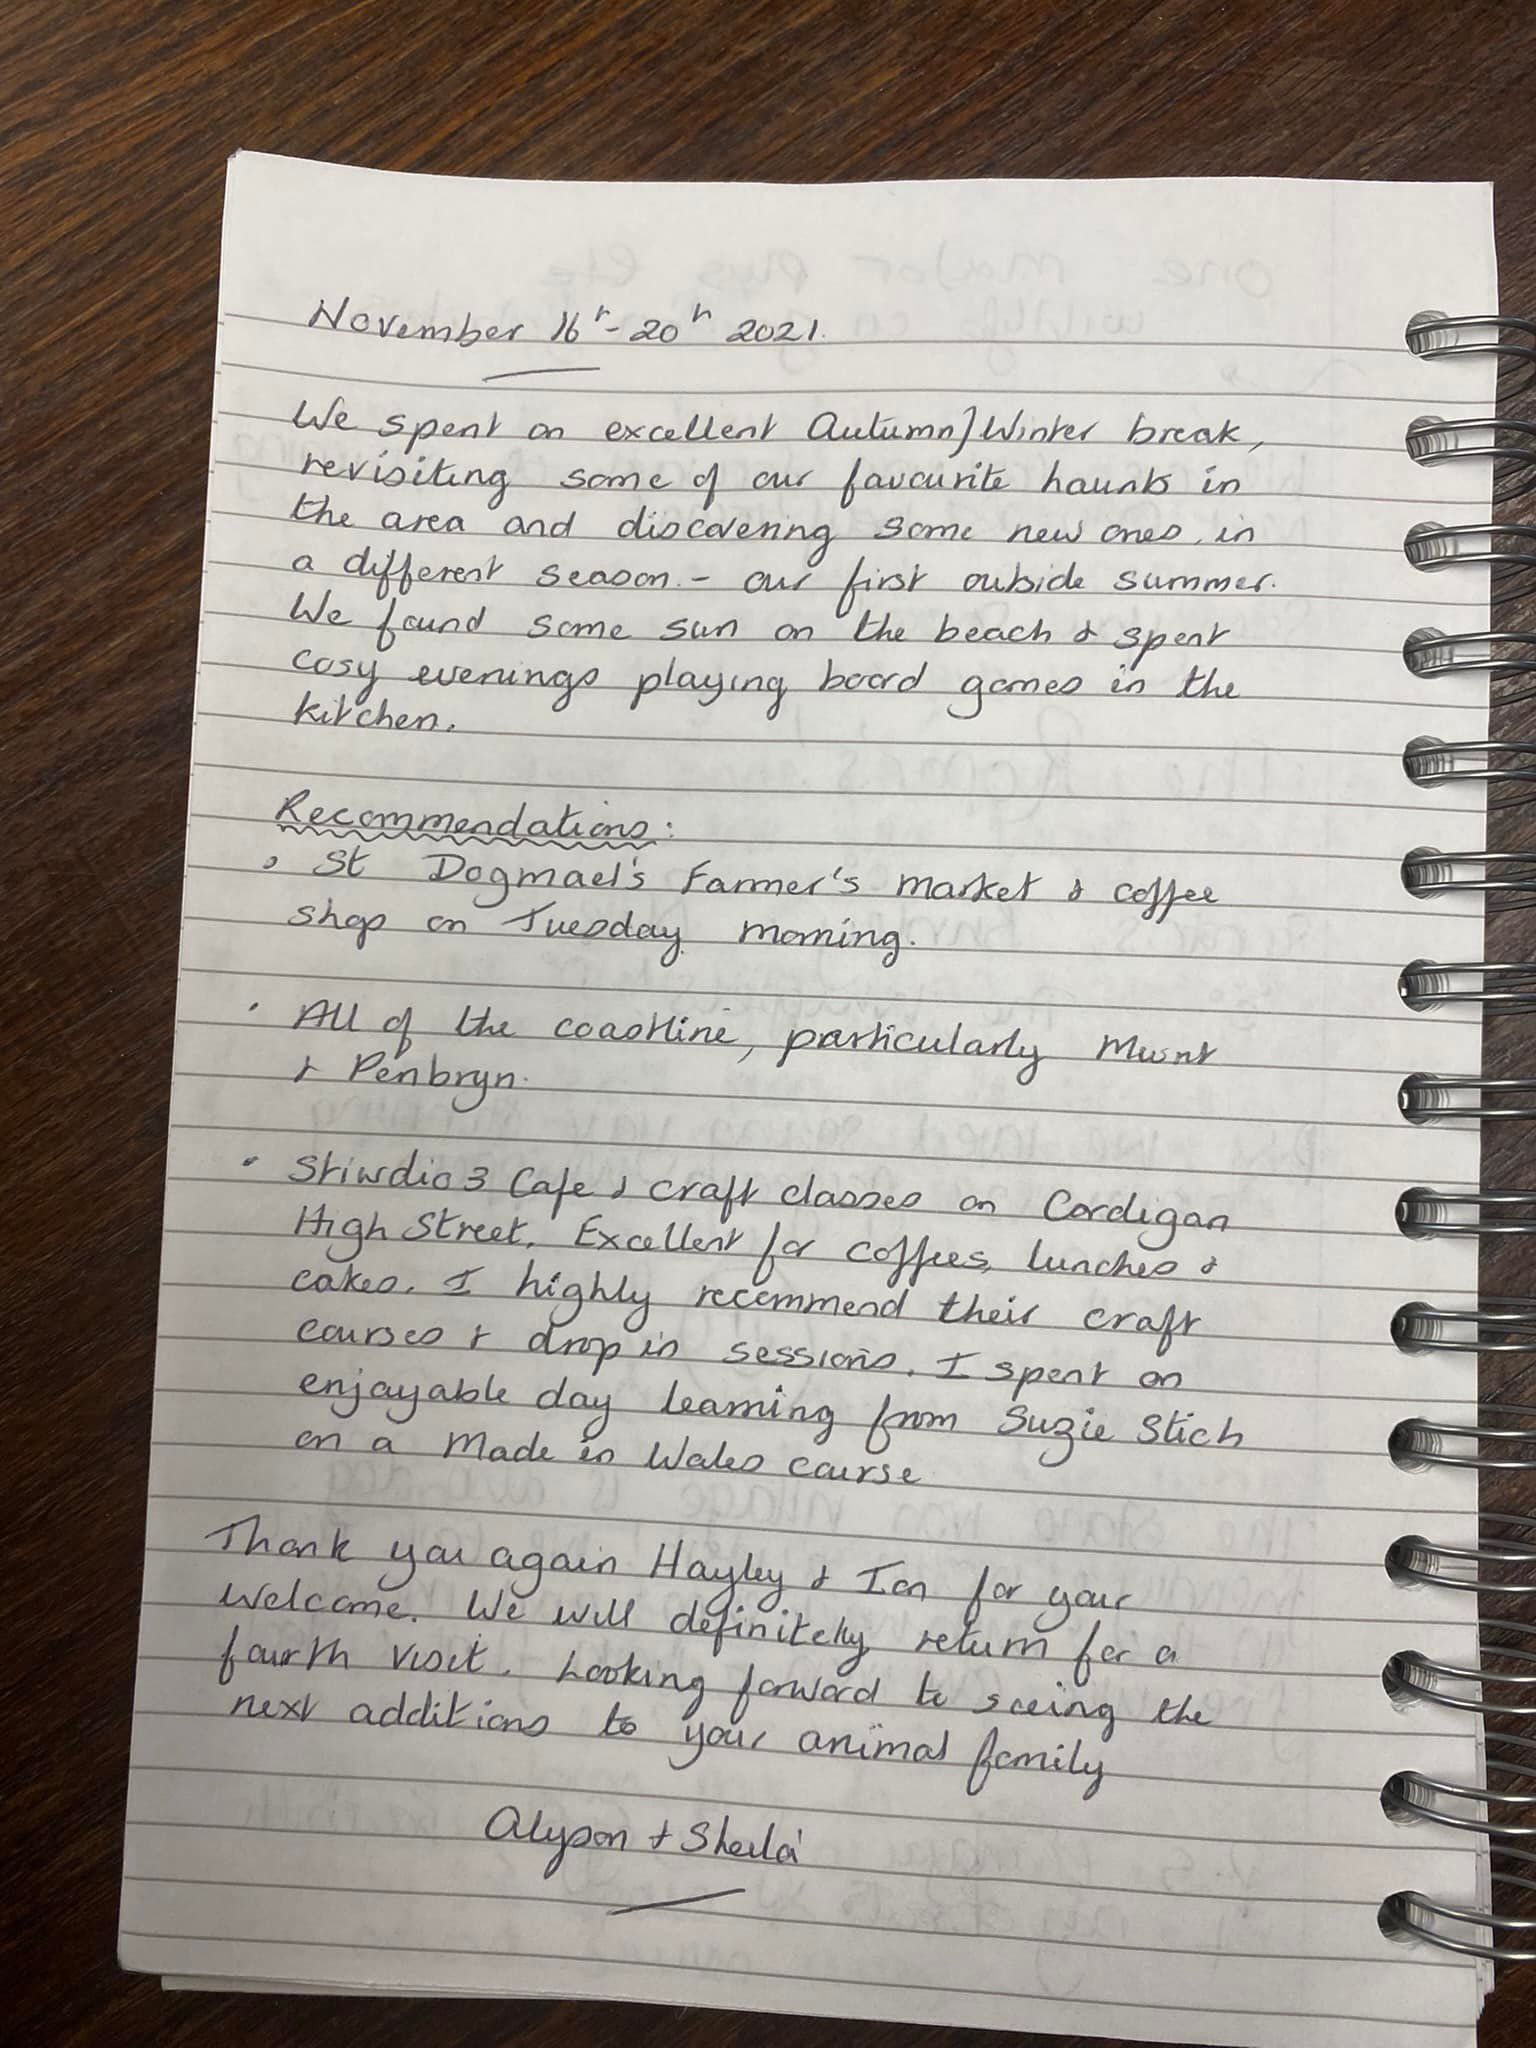 November 16th - 20th 2021.
We spent an excellent Autumn/Winter break,
revisiting some of our favourite haunts in
the area and discovering some new ones, in
a different season - our first outside summer.
We found some sun on the beach & spent
cosy evenings playing board games in the
kitchen.
Recommendations:
• St Dogmael's Farmer's market & coffee
shop on Tuesday morning.
• All of the coastline, particularly Mwnt
& Penbryn.
• Stiwdio 3 Cafe & craft classes on Cardigan
High Street. Excellent for coffees, lunches &
cakes. I highly recommend their craft
courses & drop in sessions. I spent an
enjoyable day learning from Suzie Stich
on a Made in Wales course
Thank you again Hayley & Ian for your
welcome. We will definitely return for a
fourth visit. Looking forward to seeing the
next additions to your animal family
Alyson & Sheila